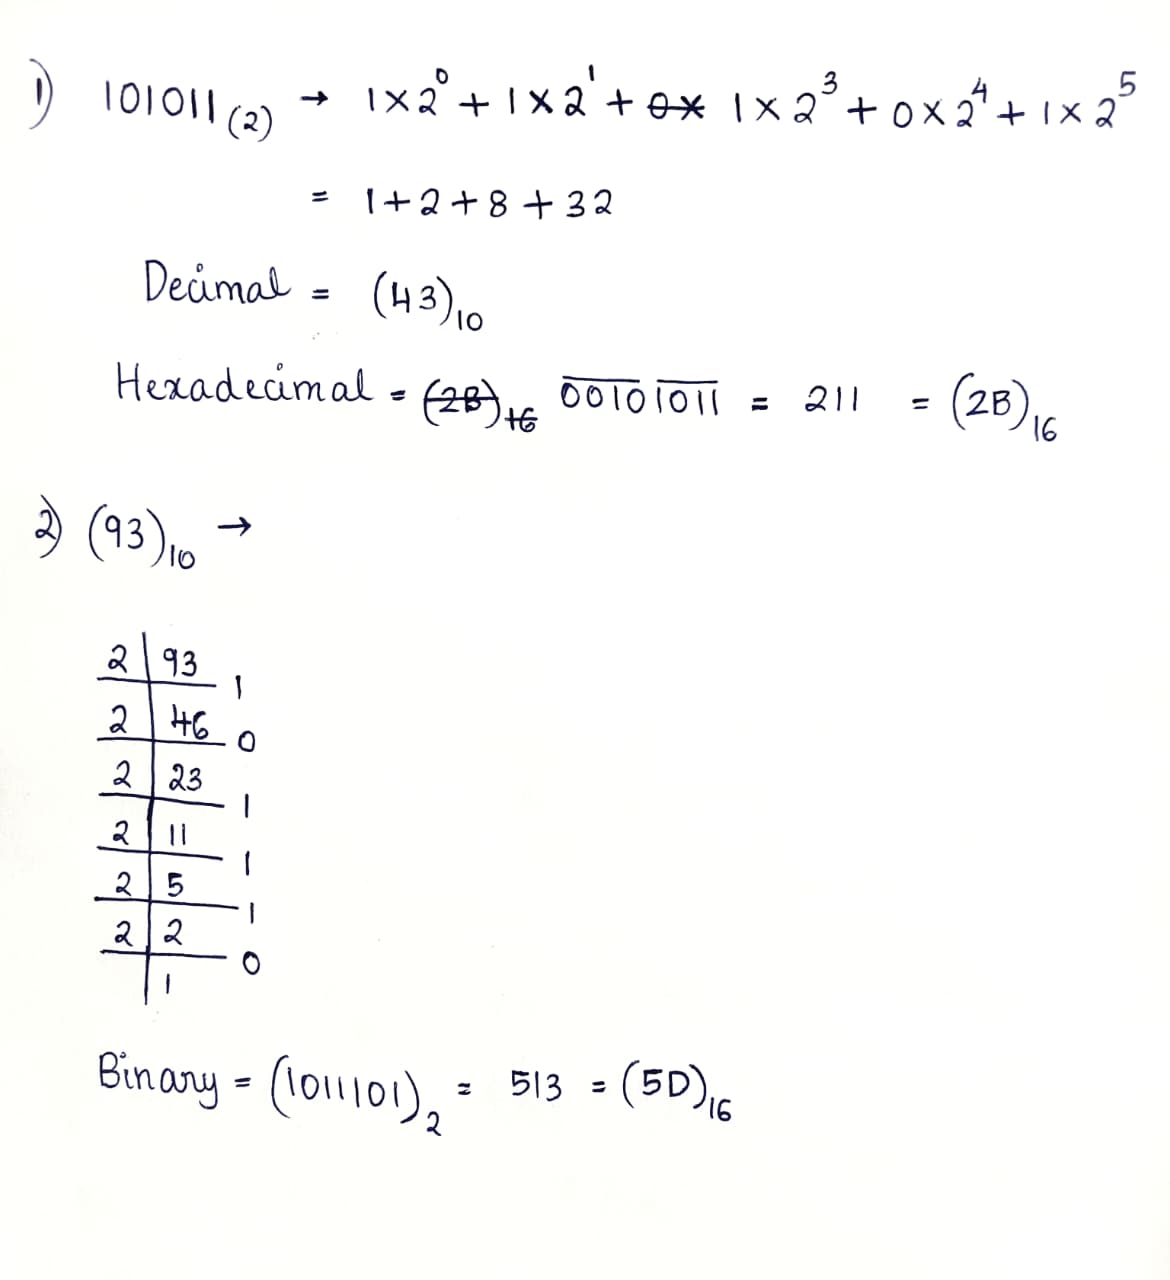 1) 101011 (2) → 1×2⁰ + 1×2¹ + 0× 1×2³ + 0×2⁴ + 1×2⁵
= 1+2+8+32
Decimal = (43)₁₀
Hexadecimal = (2B)₁₆ 00101011 = 211 = (2B)₁₆
2) (93)₁₀ →
2 | 93
1
2 | 46
0
2 | 23
1
2 | 11
1
2 | 5
1
2 | 2
0
1
Binary = (1011101)₂ = 513 = (5D)₁₆